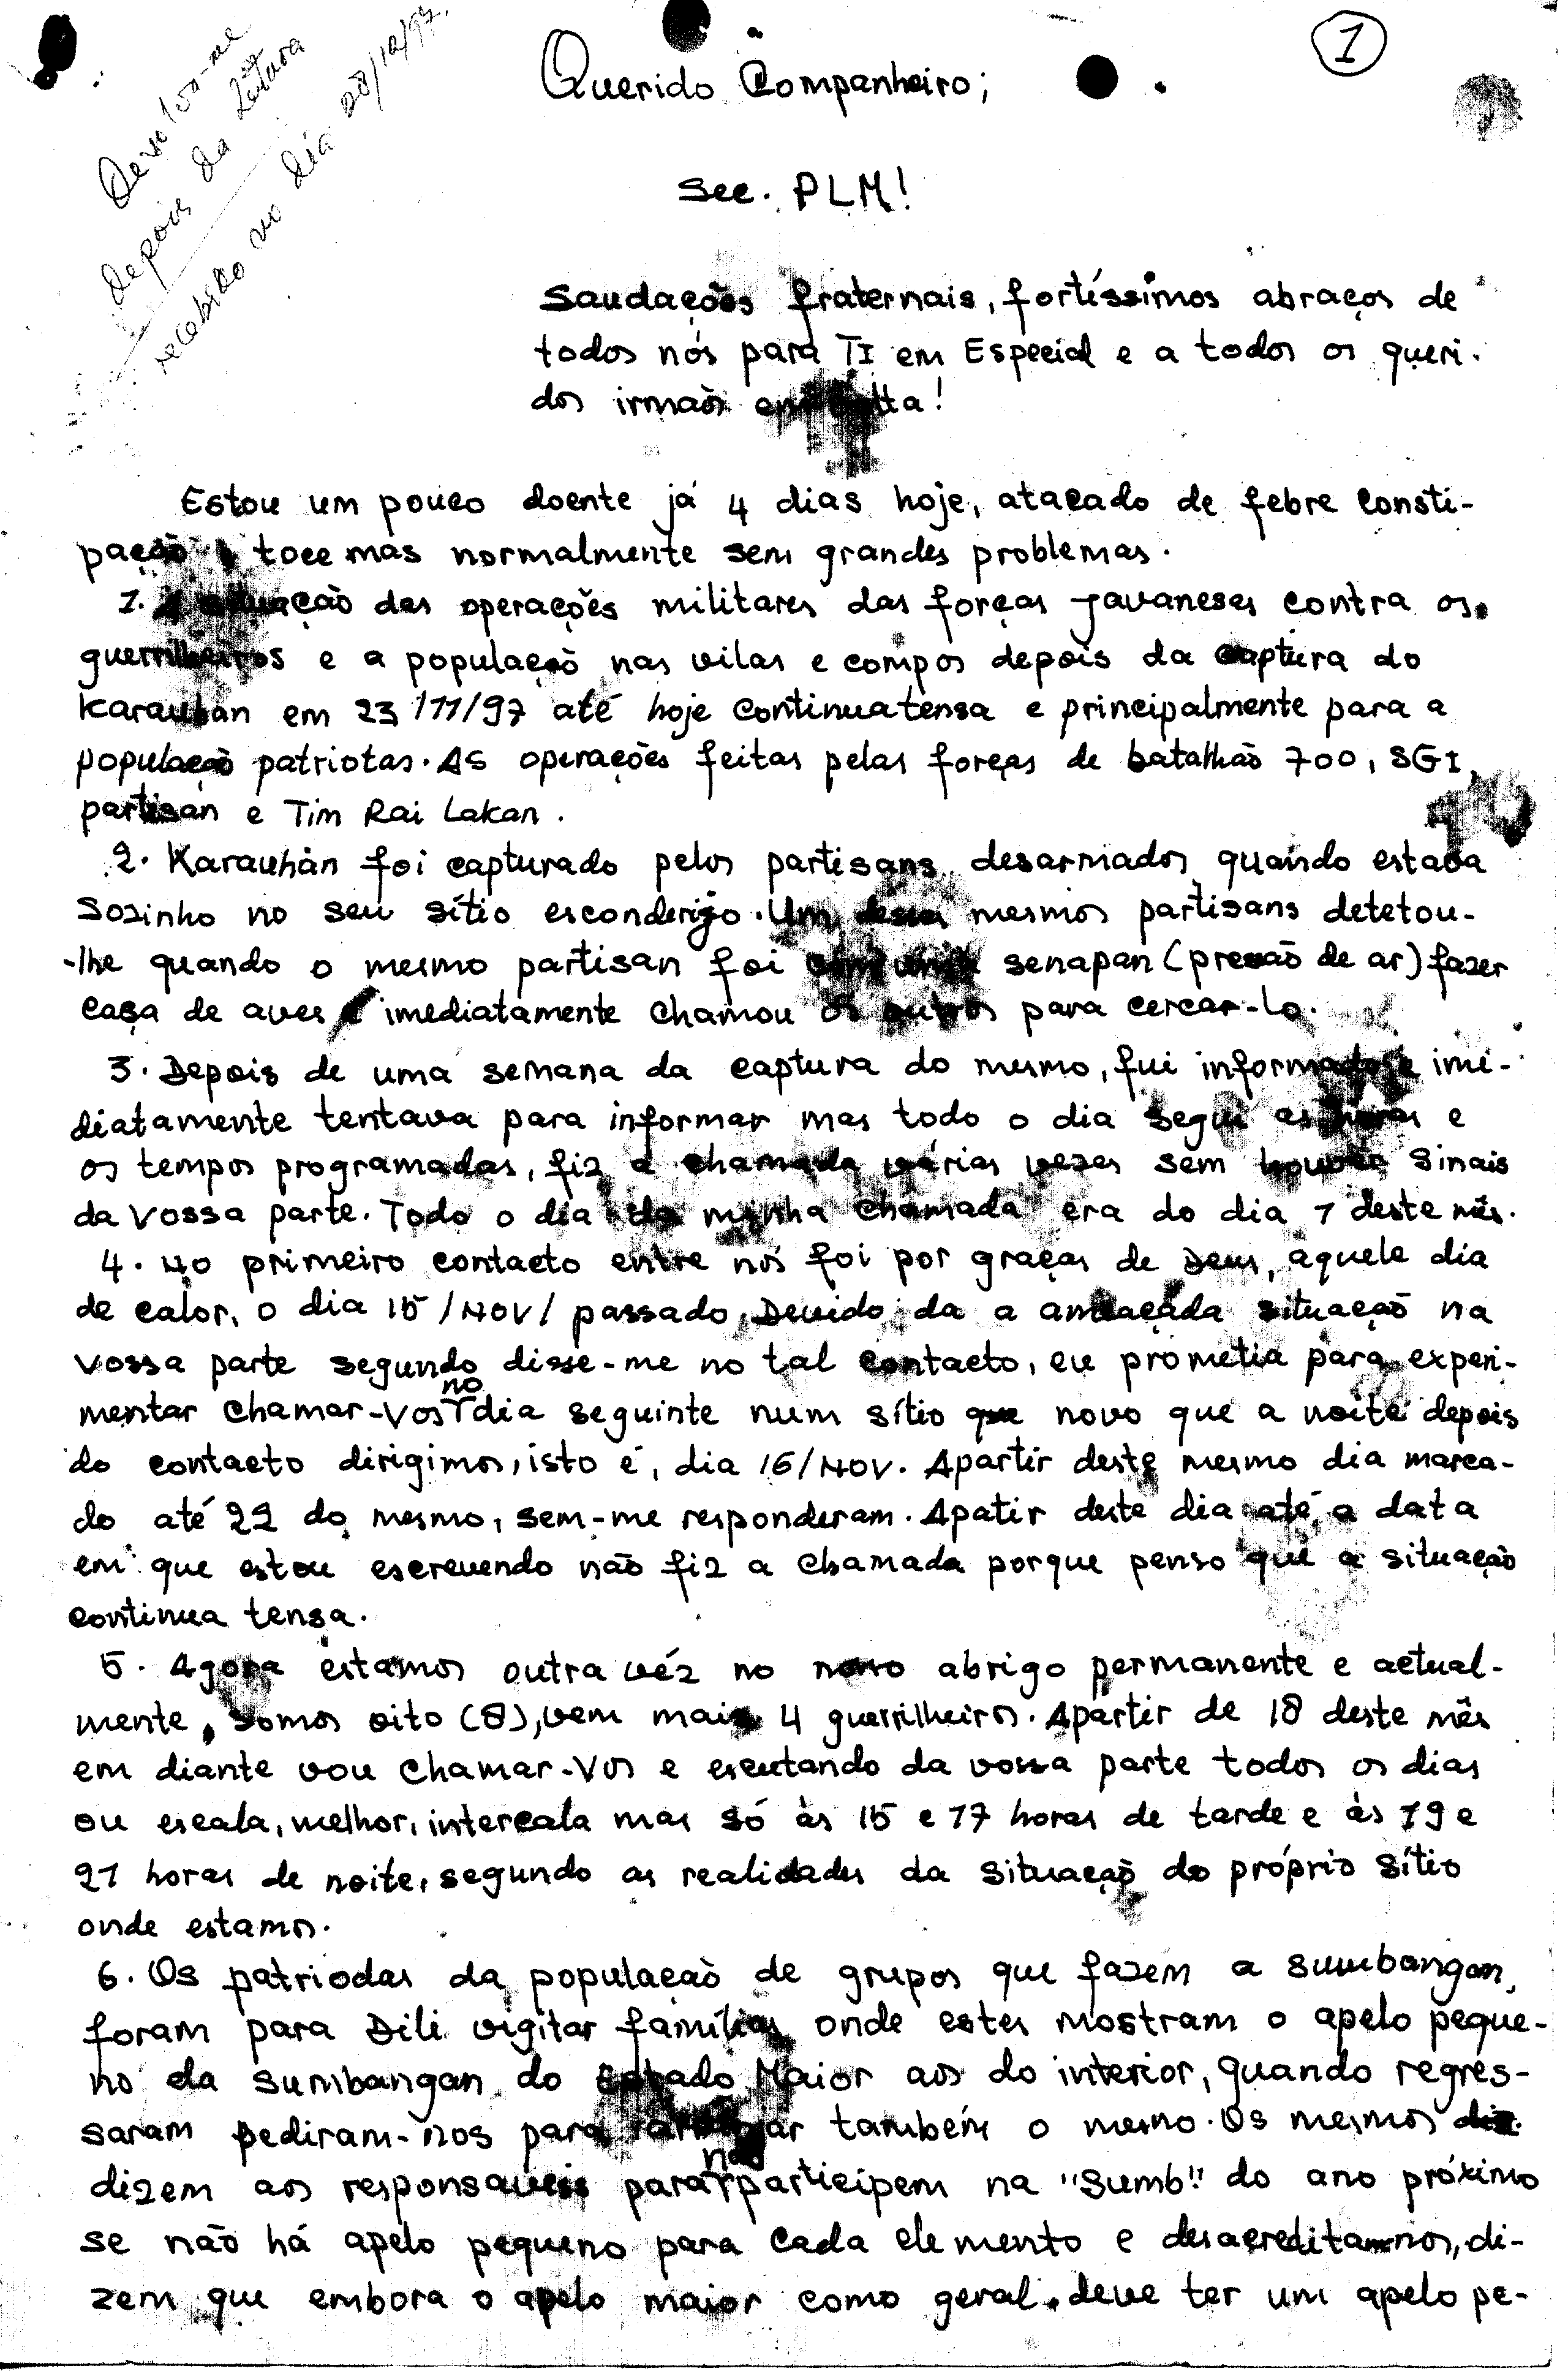 1
Devolva-me
depois da Leitura
recebido no dia 28/12/97.
Querido Companheiro;
Sec. PLM!
Saudações fraternais, fortíssimos abraços de
todos nós para TI em Especial e a todos os queri-
dos irmaòs em
Estou um pouco doente já 4 dias hoje, atacado de febre consti-
pação toce mas normalmente sem grandes problemas.
1. A das operações militares das forças javaneses contra os
guerrilheiros e a populaçaò nas vilas e compos depois da captura do
Karauhàn em 23/11/97 até hoje continua tensa e principalmente para a
populaçaò patriotas. AS operações feitas pelas forças de batalhaò 700, SGI,
partisan e Tim Rai Lakan.
2. Karauhàn foi capturado pelos partisans desarmados quando estava
Sozinho no seu sítio esconderijo. Um mesmos partisans detetou-
-lhe quando o mesmo partisan foi senapan (presaò de ar) fazer
caça de aves e imediatamente chamou os outros para cercar-lo.
3. Depois de uma semana da captura do mesmo, fui informado e imi-
diatamente tentava para informar mas todo o dia segui as horas e
os tempos programadas, fiz a chamada várias vezes sem houve Sinais
da Vossa parte. Todo o dia da minha chamada era do dia 1 deste mês.
4. No primeiro contacto entre nós foi por graças de Deus, aquele dia
de calor, o dia 15/NOV/ passado, Devido da a ameaçada situaçaò na
vossa parte segundo disse-me no tal contacto, eu prometia para experi-
mentar chamar-vos no dia seguinte num sítio novo que a noite depois
do contacto dirigimos, isto é, dia 16/NOV. Apartir deste mesmo dia marca-
do até 22 do mesmo, sem-me responderam. Apatir deste dia até a data
em que estou escrevendo não fiz a chamada porque penso que a situação
continua tensa.
5. Agora estamos outra véz no novo abrigo permanente e actual-
mente, somos oito (8), vem mais 4 guerrilheiros. Apartir de 18 deste mês
em diante vou chamar-vos e escutando da vossa parte todos os dias
ou escala, melhor, intercala mas só às 15 e 17 horas de tarde e às 19 e
21 horas de noite, segundo as realidades da situaçaò do próprio sítio
onde estamos.
6. Os patriodas da populaçaò de grupos que fazem a sumbangan,
foram para Dili vigitar famílias onde estes mostram o apelo peque-
no da sumbangan do Estado Maior aos do interior, quando regres-
saram pediram-nos para também o mesmo. Os mesmos
dizem aos responsaveis para não participem na "Sumb" do ano próximo
se não há apelo pequeno para cada elemento e desacreditam-nos, di-
zem que embora o apelo maior como geral, deve ter um apelo pe-